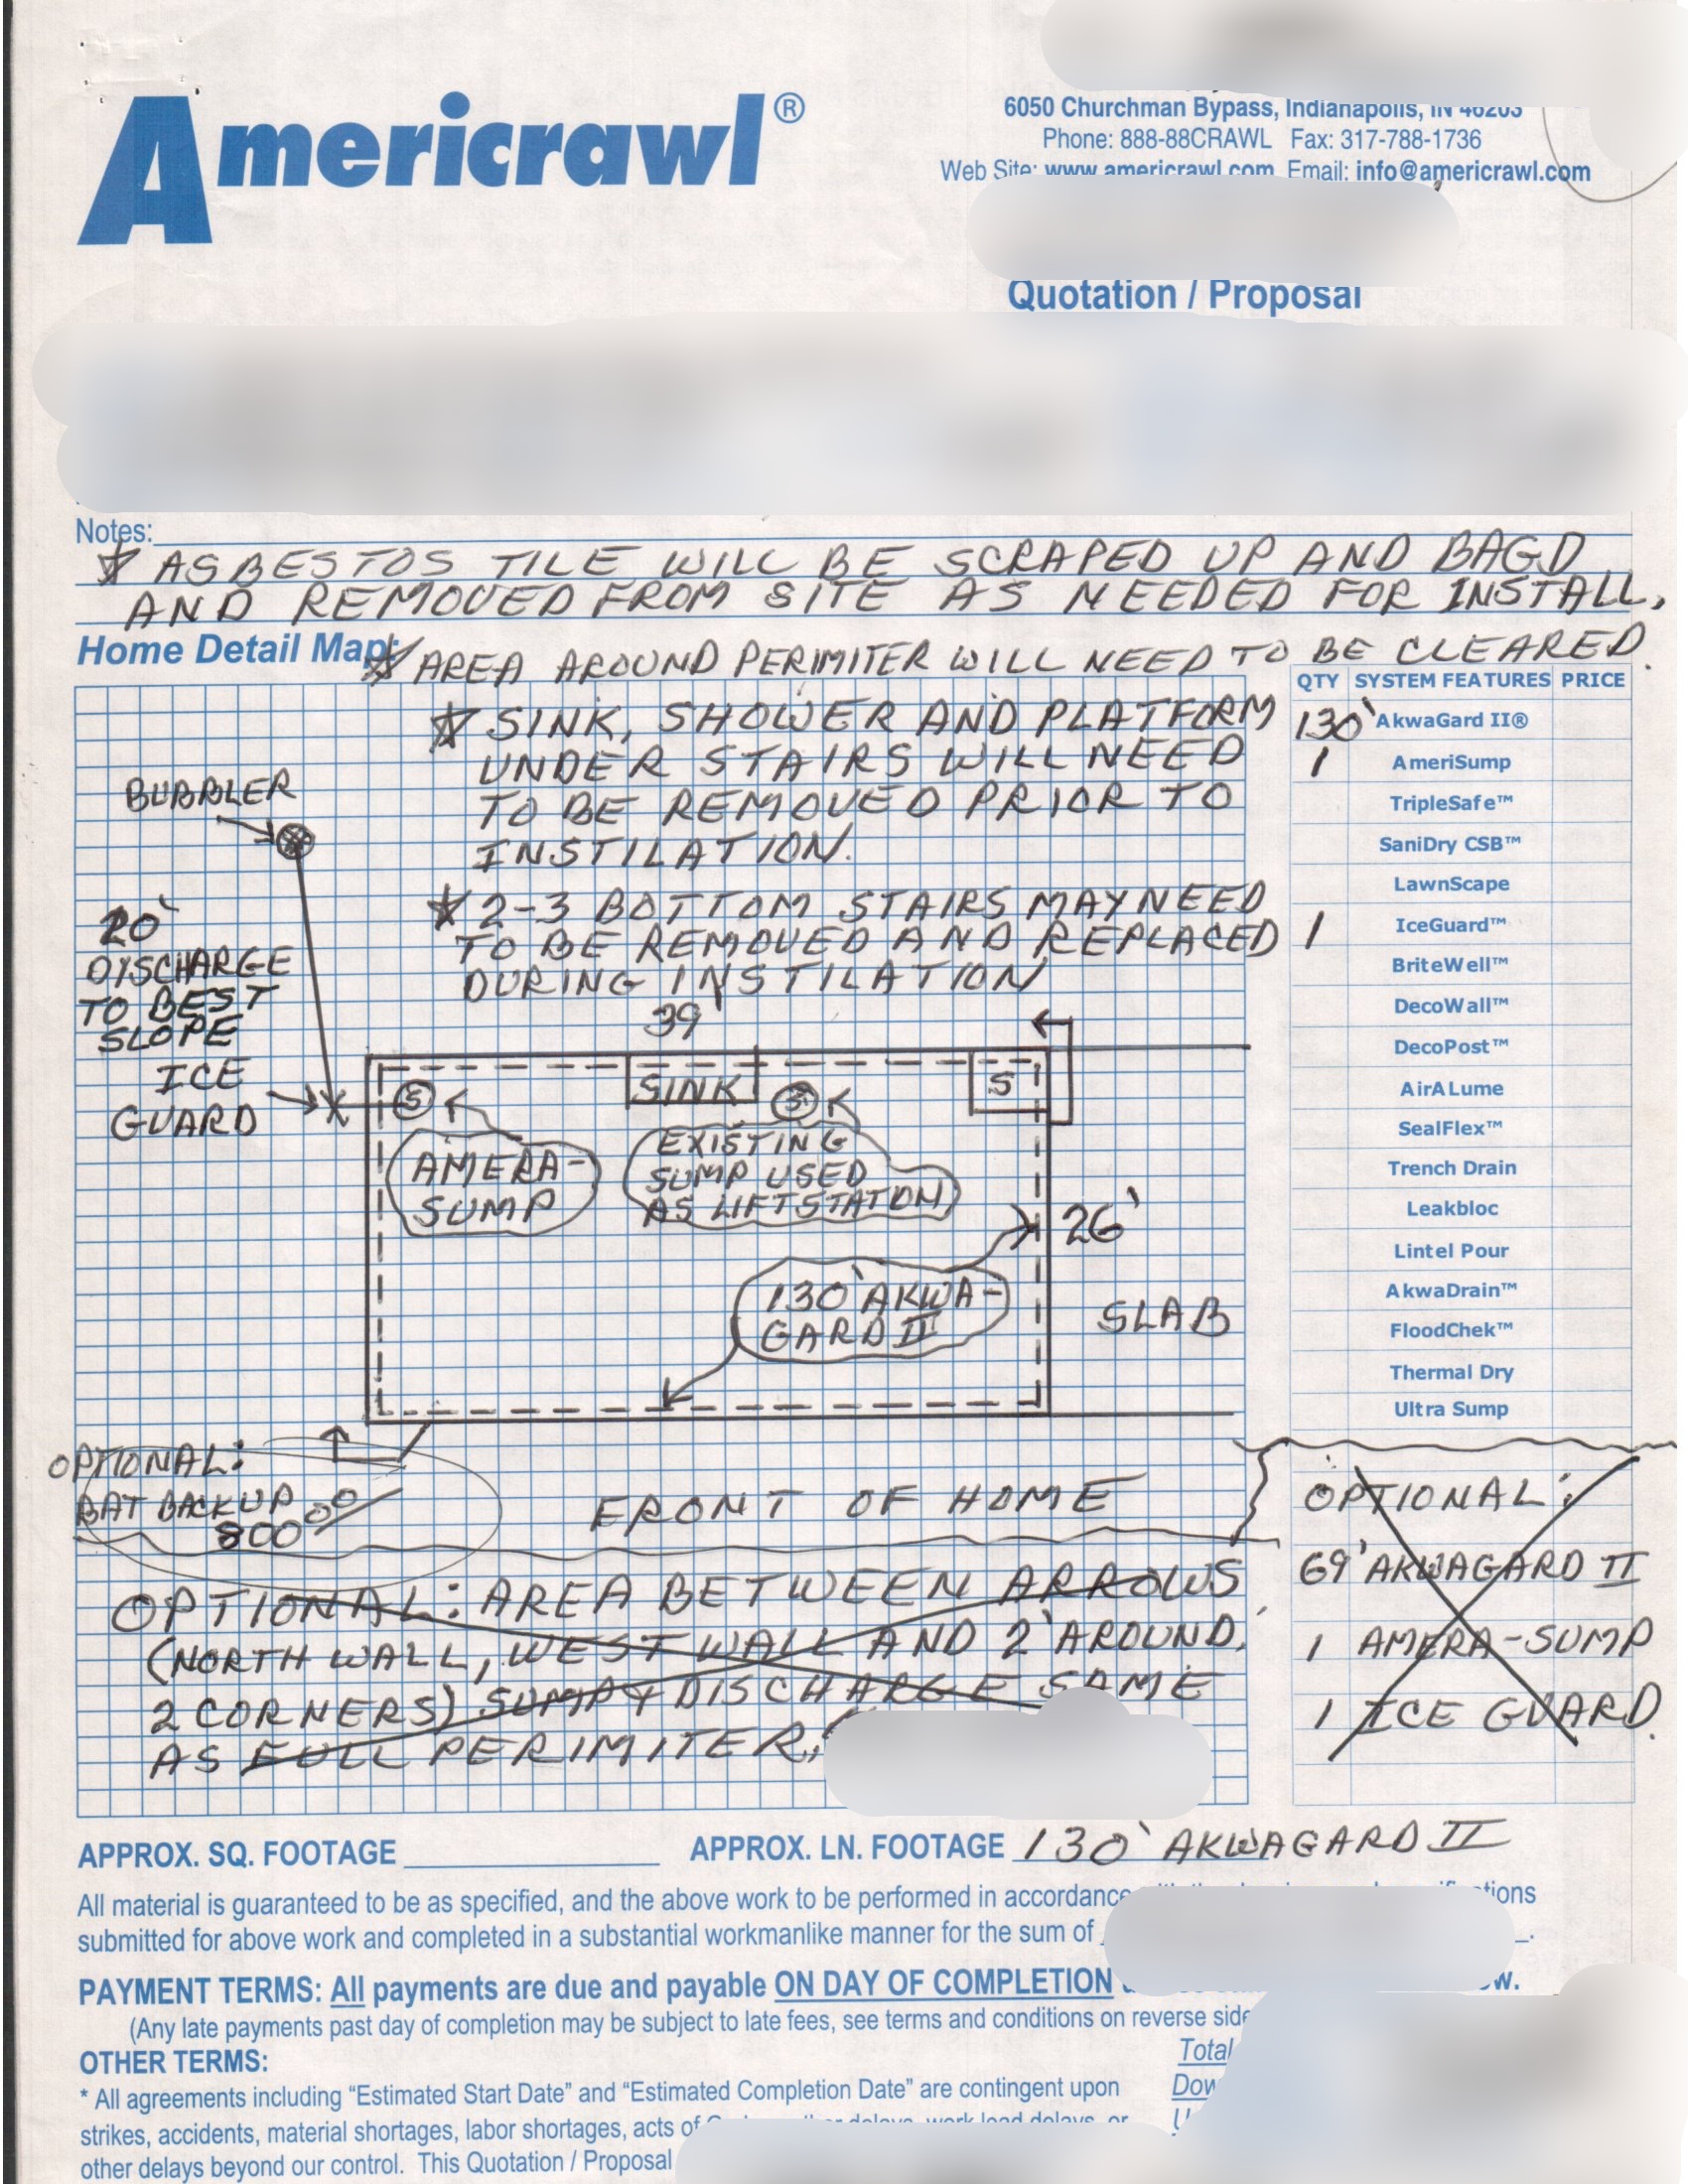 Americrawl®
6050 Churchman Bypass, Indianapolis, IN 46203
Phone: 888-88CRAWL Fax: 317-788-1736
Web Site: www.americrawl.com Email: info@americrawl.com
Quotation / Proposal
Notes:
☆ ASBESTOS TILE WILL BE SCRAPED UP AND BAGD
AND REMOVED FROM SITE AS NEEDED FOR INSTALL,
Home Detail Map:
☆ AREA AROUND PERIMITER WILL NEED TO BE CLEARED.
☆ SINK, SHOWER AND PLATFORM
UNDER STAIRS WILL NEED
TO BE REMOVED PRIOR TO
INSTILATION.
☆ 2-3 BOTTOM STAIRS MAY NEED
TO BE REMOVED AND REPLACED
DURING INSTILATION
BUBBLER
20'
DISCHARGE
TO BEST
SLOPE
ICE
GUARD
39'
S
SINK
S
S
AMERA-
SUMP
EXISTING
SUMP USED
AS LIFTSTATON
26'
130' AKWA-
GARD II
SLAB
OPTIONAL:
BAT BACKUP
800 00
FRONT OF HOME
OPTIONAL: AREA BETWEEN ARROWS
(NORTH WALL, WEST WALL AND 2' AROUND,
2 CORNERS) SUMP & DISCHARGE SAME
AS FULL PERIMITER.
QTY SYSTEM FEATURES PRICE
130' AkwaGard II®
1 AmeriSump
TripleSafe™
SaniDry CSB™
LawnScape
1 IceGuard™
BriteWell™
DecoWall™
DecoPost™
AirALume
SealFlex™
Trench Drain
Leakbloc
Lintel Pour
AkwaDrain™
FloodChek™
Thermal Dry
Ultra Sump
OPTIONAL:
69' AKWAGARD II
1 AMERA-SUMP
1 ICE GUARD.
APPROX. SQ. FOOTAGE
APPROX. LN. FOOTAGE 130' AKWAGARD II
All material is guaranteed to be as specified, and the above work to be performed in accordance
submitted for above work and completed in a substantial workmanlike manner for the sum of
PAYMENT TERMS: All payments are due and payable ON DAY OF COMPLETION
(Any late payments past day of completion may be subject to late fees, see terms and conditions on reverse side
OTHER TERMS:
Total
* All agreements including “Estimated Start Date” and “Estimated Completion Date” are contingent upon
strikes, accidents, material shortages, labor shortages, acts of
other delays beyond our control. This Quotation / Proposal